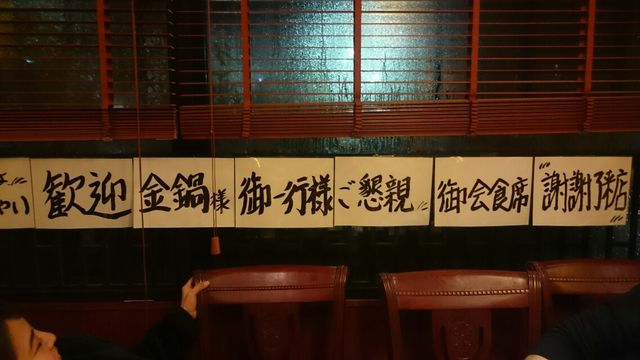 歓迎 金鍋様 御一行様 ご懇親 御会食席 謝謝粥店